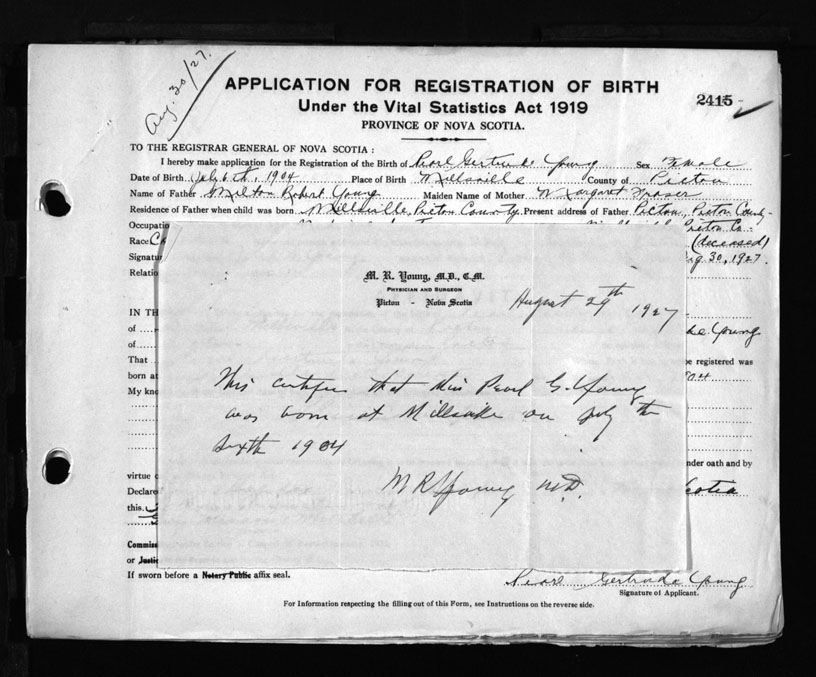 Aug. 30/27.
APPLICATION FOR REGISTRATION OF BIRTH
Under the Vital Statistics Act 1919
2415
PROVINCE OF NOVA SCOTIA.
TO THE REGISTRAR GENERAL OF NOVA SCOTIA :
I hereby make application for the Registration of the Birth of Pearl Gertrude Young Sex Female
Date of Birth July 6th, 1904 Place of Birth Millsville County of Pictou
Name of Father Milton Robert Young Maiden Name of Mother Margaret Fraser
Residence of Father when child was born Millsville, Pictou County Present address of Father Pictou, Pictou County
Occupatio Pictou Co.
Race (deceased)
Signatur g 30, 1927.
Relatio
M. R. Young, M.D., C.M.
PHYSICIAN AND SURGEON
Pictou - Nova Scotia
August 29th 1927
IN TH
of
of Young
That be registered was
born at
My kno
This certifies that Miss Pearl G. Young
was born at Millsville on July the
sixth 1904
M R Young M.D.
nder oath and by
virtue o
Declare cotia
this.
Commiss
or Justic
If sworn before a Notary Public affix seal.
Pearl Gertrude Young
Signature of Applicant.
For Information respecting the filling out of this Form, see Instructions on the reverse side.